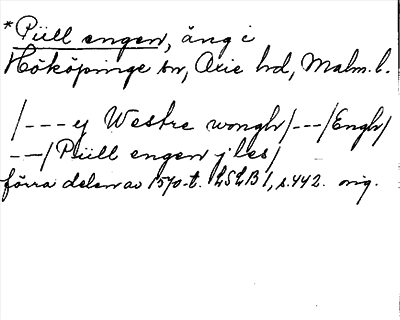 *Püll engen, äng i
Hököpinge sn, Oxie hd, Malm. l.
/---ej Westre wongh/---/Engh/
--/Püll engen j les/
förra delen av 1570-t. LSLB 1, s. 442. orig.